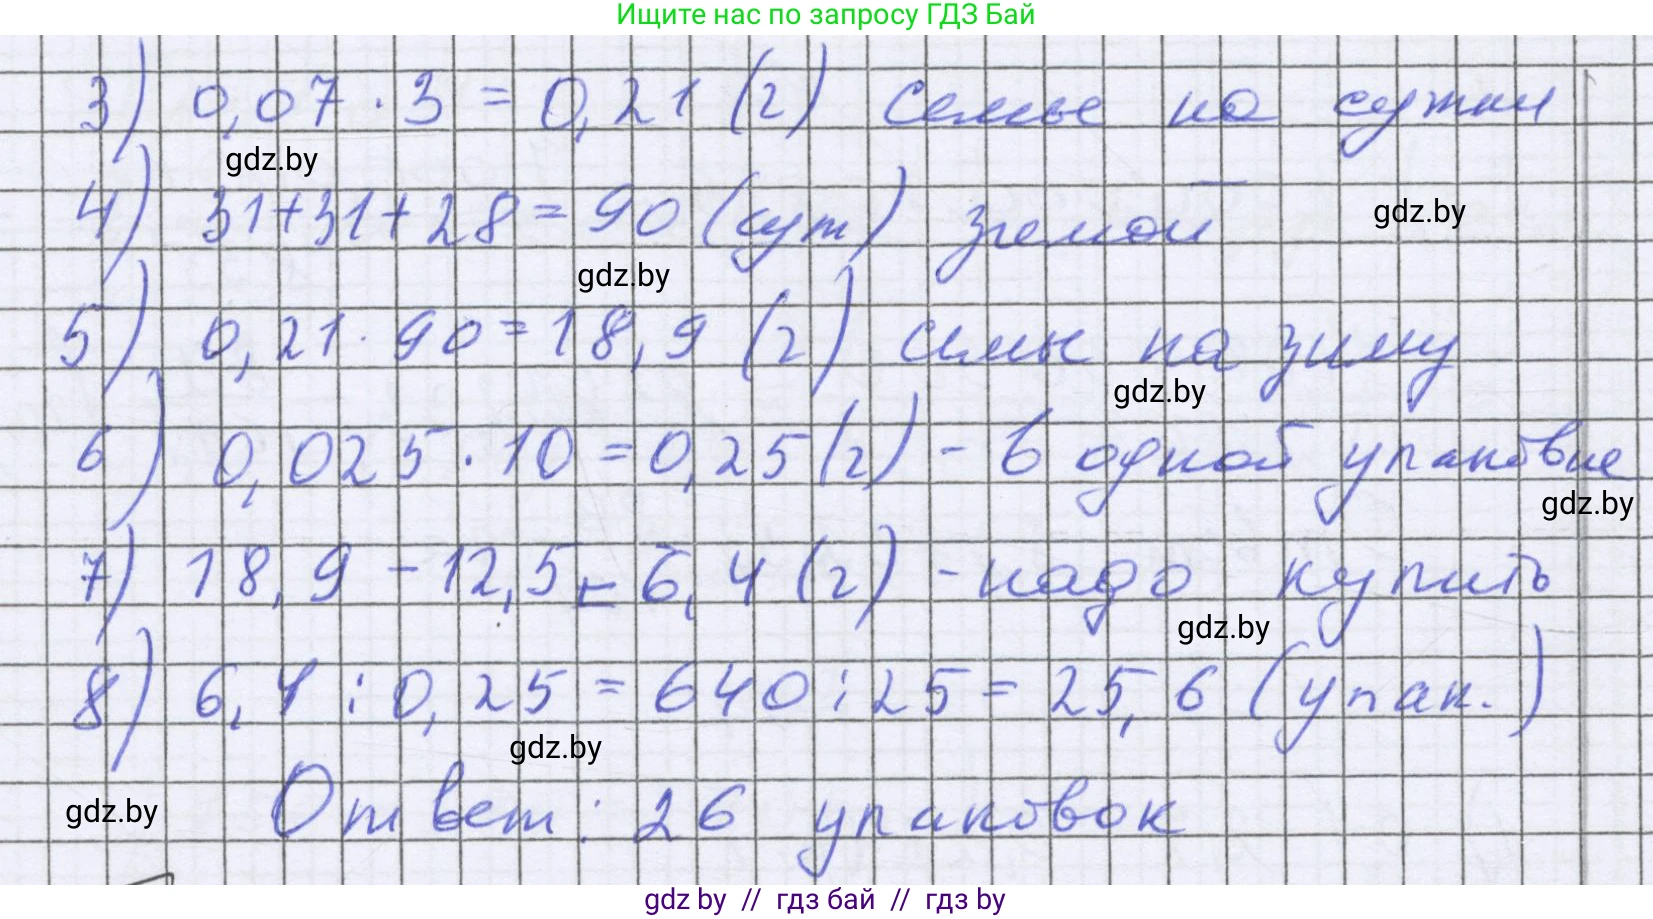 Ищите нас по запросу ГДЗ Бай
3) 0,07 · 3 = 0,21 (г) семье на сутки
gdz.by
4) 31+31+28 = 90 (сут) зимой
gdz.by
gdz.by
5) 0,21 · 90 = 18,9 (г) семье на зиму
gdz.by
6) 0,025 · 10 = 0,25 (г) - в одной упаковке
gdz.by
7) 18,9 - 12,5 = 6,4 (г) - надо купить
gdz.by
8) 6,4 : 0,25 = 640 : 25 = 25,6 (упак.)
gdz.by
gdz.by
Ответ: 26 упаковок
gdz by // гдз бай // гдз by